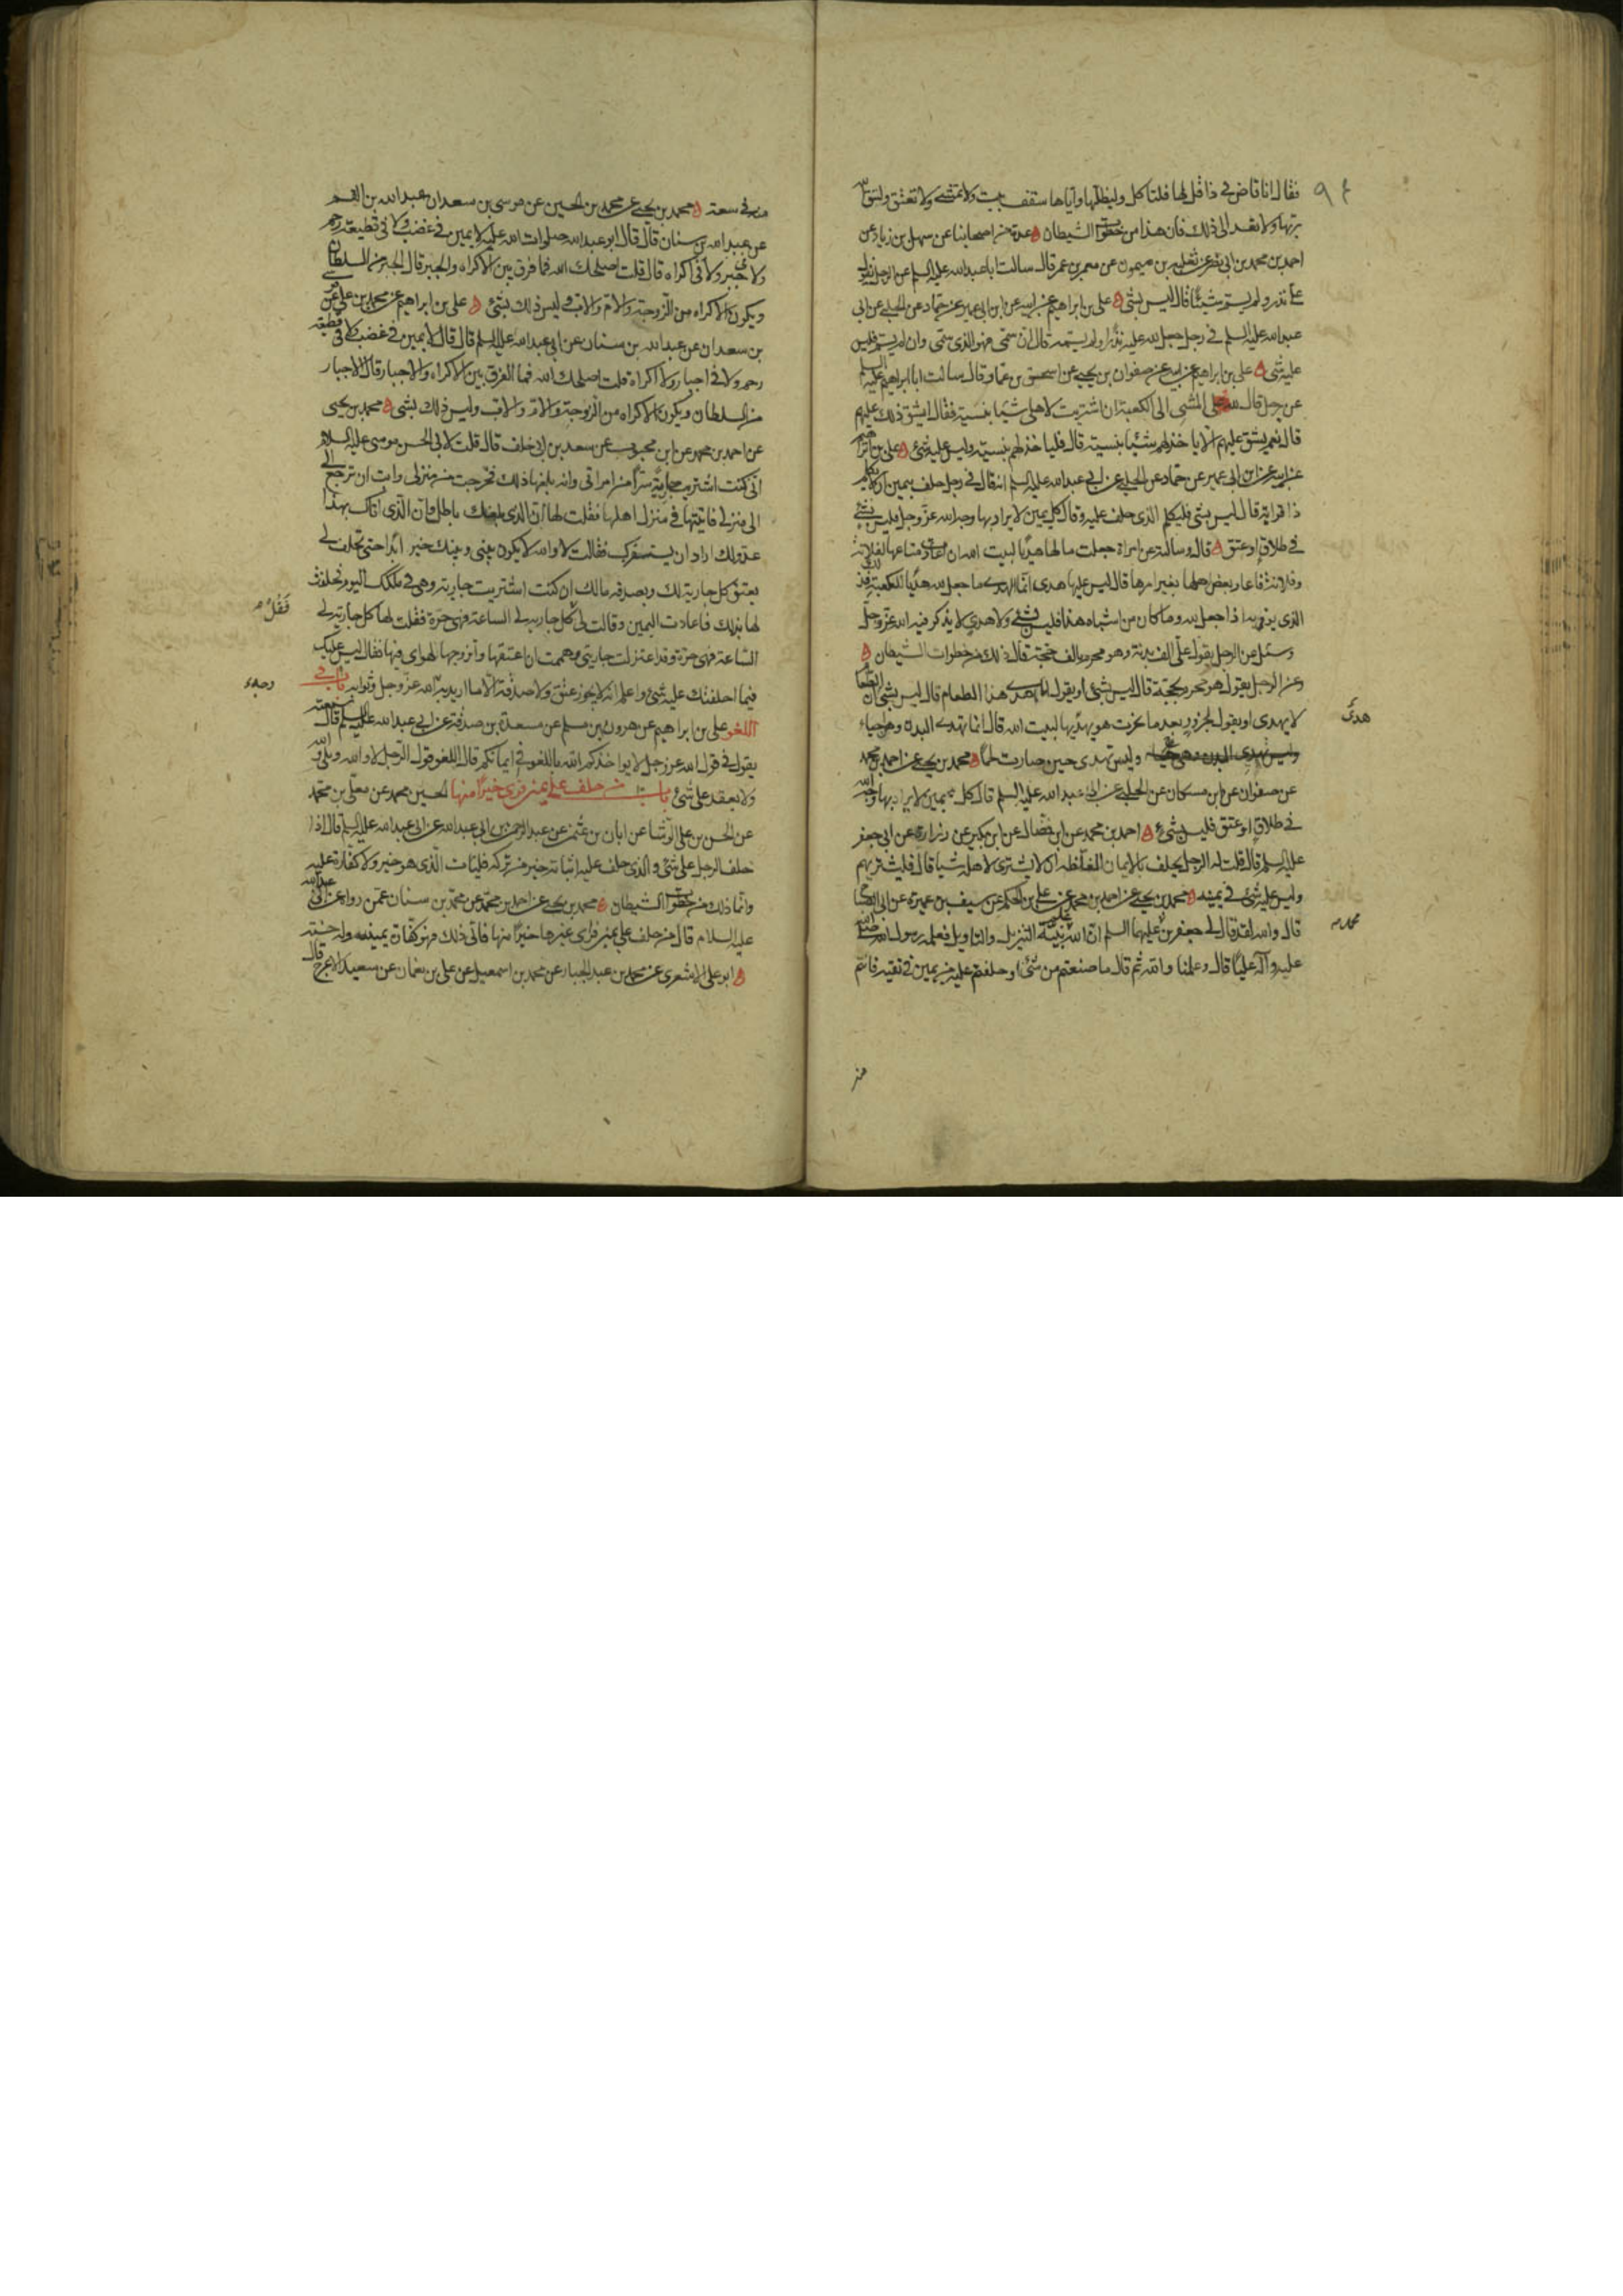 فقال انا قاض في ذا قل لها فلتاكل وليظلها واياها سقف بيت ولا تمشي ولا تعتق ولتتق الله
ربها ولا تعد الى ذلك فان هذا من خطوات الشيطان عدة من اصحابنا عن سهل بن زياد عن
احمد بن محمد بن ابي نصر عن ثعلبة بن ميمون عن معمر بن عمر قال سالت ابا عبد الله عليه السلم عن الرجل يقول
علي نذر ولم يسم شيئا قال ليس بشئ علي بن ابراهيم عن ابيه عن ابن ابي عمير عن حماد عن الحلبي عن ابي
عبد الله عليه السلم في رجل جعل لله عليه نذرا ولم يسمه قال ان سمى فهو الذي سمى وان لم يسم فليس
عليه شئ علي بن ابراهيم عن ابيه عن صفوان بن يحيى عن اسحق بن عمار قال سالت ابا ابراهيم عليه السلم
عن رجل قال لله علي المشي الى الكعبة ان اشتريت لاهلي شيئا بنسية فقال ايشق ذلك عليهم
قال نعم يشق عليهم الا ياخذ لهم شيئا بنسية قال فلياخذ لهم بنسية وليس عليه شئ علي بن ابراهيم
عن ابيه عن ابن ابي عمير عن حماد عن الحلبي عن ابي عبد الله عليه السلم انه قال في رجل حلف بيمين ان لا يكلم
ذا قرابة قال ليس بشئ فليكلم الذي حلف عليه وقال كل يمين لا يراد بها وجه الله عز وجل فليس بشئ
في طلاق او عتق قال وسالته عن امراة جعلت مالها هديا لبيت الله ان اعارت متاعها لفلانة
وفلانة فاعار بعض اهلها بغير امرها قال ليس عليها هدي انما الهدي ما جعل لله هديا للكعبة فذلك
الذي يوفى به اذا جعل لله وما كان من اشباه هذا فليس بشئ ولا هدي لا يذكر فيه الله عز وجل
وسئل عن الرجل يقول علي الف بدنة وهو محرم بالف حجة قال ذلك من خطوات الشيطان
وعن الرجل يقول هو محرم بحجة قال ليس بشئ او يقول انا اهدي هذا الطعام قال ليس بشئ ان الطعام
هدى
لا يهدى او يقول لجزور بعد ما نحرت هو يهديها لبيت الله قال انما تهدى البدن وهي احياء
وليس تهدى حين صارت لحما محمد بن يحيى عن احمد بن محمد
عن صفوان عن ابن مسكان عن الحلبي عن ابي عبد الله عليه السلم قال كل يمين لا يراد بها وجه الله
في طلاق او عتق فليس بشئ احمد بن محمد عن ابن فضال عن ابن بكير عن زرارة عن ابي جعفر
عليه السلم قال قلت له الرجل يحلف بالايمان المغلظة ان لا يشترى لاهله شيئا قال فليشتر لهم
وليس عليه شئ في يمينه محمد بن يحيى عن احمد بن محمد عن علي بن الحكم عن سيف بن عميرة عن ابي الصباح
محمد
قال والله لقد قال لي جعفر بن عليهما السلم ان الله علم نبيه التنزيل والتاويل فعلمه رسول الله صلى الله
عليه وآله عليا قال وعلمنا والله ثم قال ما صنعتم من شئ او حلفتم عليه من يمين في تقية فانتم
منه
منه في سعة محمد بن يحيى عن محمد بن الحسين عن موسى بن سعدان عن عبد الله بن القسم
عن عبد الله بن سنان قال قال ابو عبد الله صلوات الله عليه لا يمين في غضب ولا في قطيعة رحم
ولا في جبر ولا في اكراه قال قلت اصلحك الله فما فرق بين الاكراه والجبر قال الجبر من السلطان
ويكون الاكراه من الزوجة والام والاب وليس ذلك بشئ علي بن ابراهيم عن محمد بن علي عن موسى
بن سعدان عن عبد الله بن سنان عن ابي عبد الله عليه السلم قال قال لا يمين في غضب ولا في قطيعة
رحم ولا في اجبار ولا اكراه قلت اصلحك الله فما الفرق بين الاكراه والاجبار قال الاجبار
من السلطان ويكون الاكراه من الزوجة والام والاب وليس ذلك بشئ محمد بن يحيى
عن احمد بن محمد عن ابن محبوب عن سعد بن ابي خلف قال قلت لابي الحسن موسى عليه السلام
اني كنت اشتريت جارية سرا من امراتي وانه بلغها ذلك فخرجت من منزلي وابت ان ترجع
الى منزلي فاتيتها في منزل اهلها فقلت لها ان الذي بلغك باطل وان الذي اتاك بهذا
عدو لك اراد ان يستفزك فقالت لا والله لا يكون بيني وبينك خير ابدا حتى تحلف لي
بعتق كل جارية لك وبصدقة مالك ان كنت اشتريت جارية وهي في ملكك اليوم فحلفت
لها بذلك فاعادت اليمين وقالت لي كل جارية لي الساعة فهي حرة فقلت لها كل جارية لي
فقل
الساعة فهي حرة وقد اعتزلت جاريتي وهممت ان اعتقها واتزوجها لهواي فيها فقال ليس عليك
فيما احلفتك عليه شئ واعلم انه لا يجوز عتق ولا صدقة الا ما اريد به الله عز وجل وثوابه باب في
وجه
اللغو علي بن ابراهيم عن هرون بن مسلم عن مسعدة بن صدقة عن ابي عبد الله عليه السلم قال سمعته
يقول في قول الله عز وجل لا يواخذكم الله باللغو في ايمانكم قال اللغو قول الرجل لا والله وبلى والله
ولا يعقد على شئ باب من حلف على يمين فراى خيرا منها الحسين بن محمد عن معلى بن محمد
عن الحسن بن علي الوشا عن ابان بن عثمن عن عبد الرحمن بن ابي عبد الله عن ابي عبد الله عليه السلم قال اذا
حلف الرجل على شئ والذي حلف عليه اتيانه خير من تركه فليات الذي هو خير ولا كفارة عليه
وانما ذلك من خطوات الشيطان محمد بن يحيى عن احمد بن محمد عن محمد بن سنان عمن رواه عن ابي عبد الله
عليه السلام قال من حلف على يمين فراى غيرها خيرا منها فاتى ذلك فهو كفارة يمينه وله حسنة
ابو علي الاشعري عن محمد بن عبد الجبار عن محمد بن اسمعيل عن علي بن نعمان عن سعيد الاعرج قال